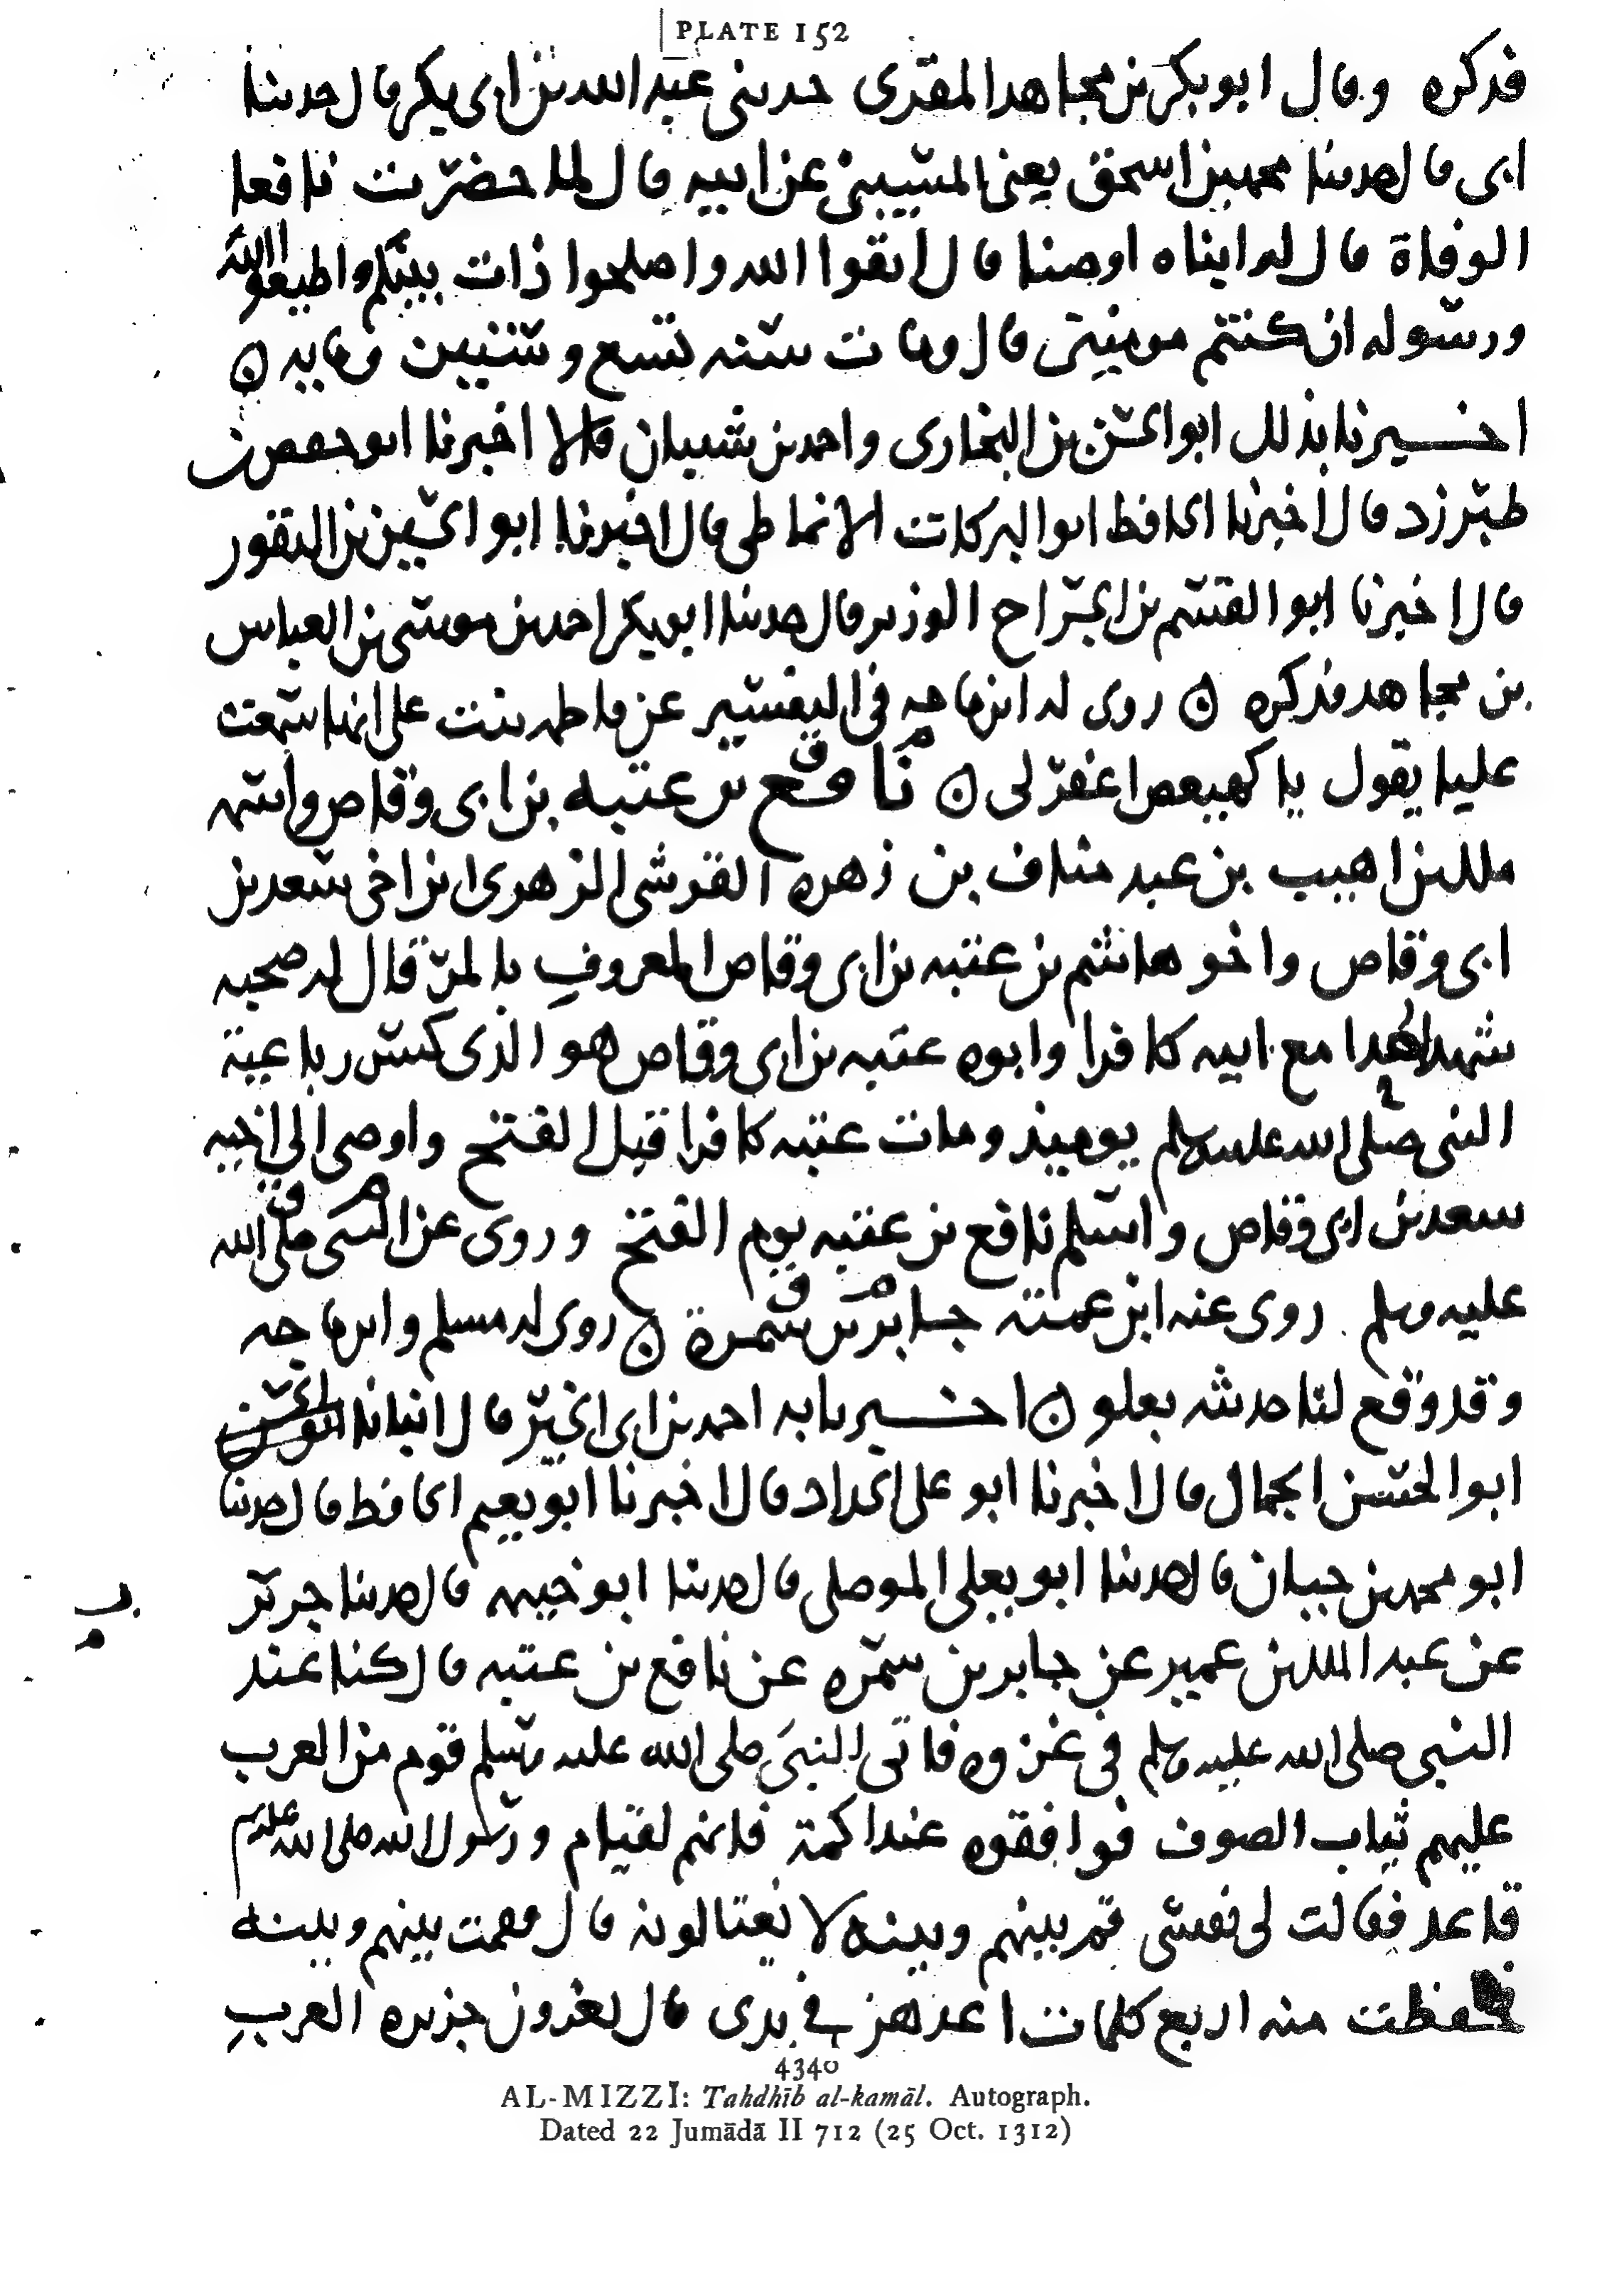 PLATE 152
فذكره وقال ابو بكر بن مجاهد المقرى حدثنى عبد الله بن ابى بكر قال حدثنا
ابى قال حدثنا محمد بن اسحق يعنى المسيبى عن ابيه قال لما حضرت نافعا
الوفاة قال له ابناه اوصنا قال اتقوا الله واصلحوا ذات بينكم واطيعوا الله
ورسوله ان كنتم مومنين قال ومات سنه تسع وستين ومايه ن
اخبرنا بذلك ابو الحسن بن البخارى واحمد بن شيبان قالا اخبرنا ابو حفص بن
طبرزد قال اخبرنا الحافظ ابو البركات الانماطى قال اخبرنا ابو الحسين بن النقور
قال اخبرنا ابو القسم بن الجراح الوزير قال حدثنا ابو بكر احمد بن موسى بن العباس
بن مجاهد فذكره ن روى له ابن ماجه فى التفسير عن فاطمه بنت على انها سمعت
عليا يقول يا كهيعص اغفر لى ن نافع بن عتبه بن ابى وقاص واسمه
ملك بن اهيب بن عبد مناف بن زهره القرشى الزهرى ابن اخى سعد بن
ابى وقاص واخو هاشم بن عتبه بن ابى وقاص المعروف بالمرقال له صحبه
شهد احدا مع ابيه كافرا وابوه عتبه بن ابى وقاص هو الذى كسر رباعية
النبى صلى الله عليه وسلم يوميذ ومات عتبه كافرا قبل الفتح واوصى الى اخيه
سعد بن ابى وقاص واسلم نافع بن عتبه يوم الفتح وروى عن النبى صلى الله
عليه وسلم روى عنه ابن عمته جابر بن سمرة ن روى له مسلم وابن ماجه
وقد وقع لنا حديثه بعلو ن اخبرنا به احمد بن ابى الخير قال انبانا
ابو الحسن الجمال قال اخبرنا ابو على الحداد قال اخبرنا ابو نعيم الحافظ قال حدثنا
ابو محمد بن حيان قال حدثنا ابو يعلى الموصلى قال حدثنا ابو خيثمه قال حدثنا جرير
عن عبد الملك بن عمير عن جابر بن سمره عن نافع بن عتبه قال كنا عند
النبى صلى الله عليه وسلم فى غزوه فاتى النبى صلى الله عليه وسلم قوم من العرب
عليهم ثياب الصوف فوافقوه عند اكمة فانهم لقيام ورسول الله صلى الله عليه وسلم
قاعد فقالت لى نفسى قم بينهم وبينه لا يغتالونه قال فقمت بينهم وبينه
فحفظت منه اربع كلمات اعدهن فى يدى قال تغزون جزيره العرب
4340
AL-MIZZĪ: Tahdhīb al-kamāl. Autograph.
Dated 22 Jumādā II 712 (25 Oct. 1312)